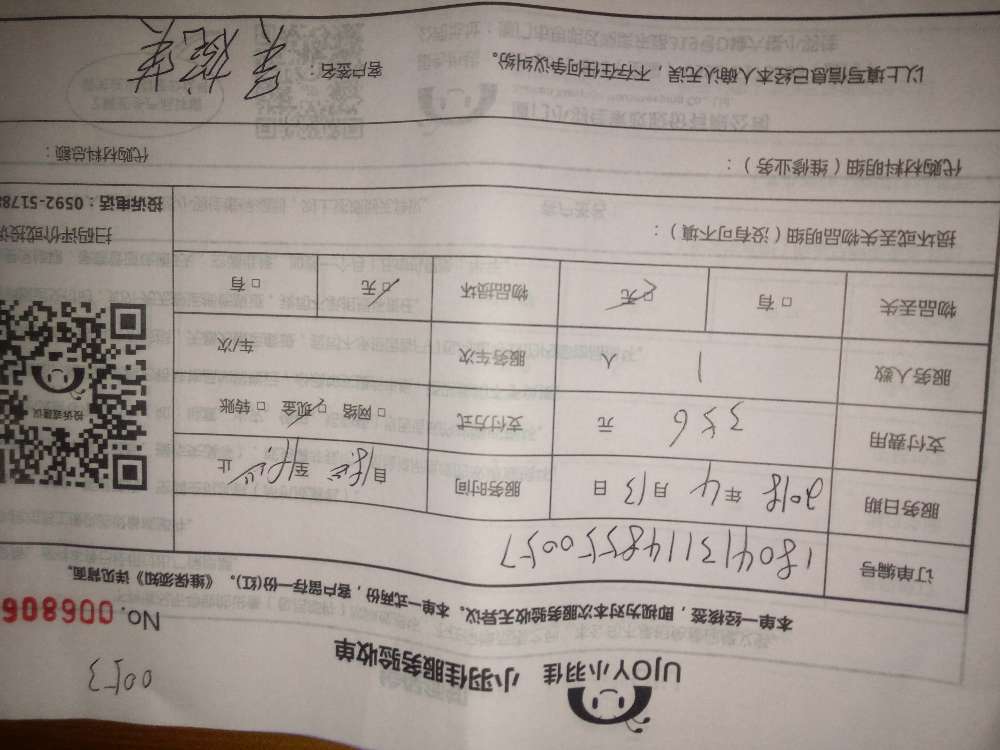 0053
UJOY小羽佳 小羽佳服务验收单
No. 006806
本单一经核签，即视为对本次服务验收无异议。本单一式两份，客户留存一份(红)。《维保须知》详见背面。
订单编号 18041311485550057
服务日期 2018 年 4 月 13 日 服务时间 自 至 止
支付费用 356 元 支付方式 □ 网络 □ 现金 □ 转账
服务人数 1 人 服务车次 车/次
物品丢失 □ 有 □ 无 物品损坏 □ 无 □ 有
投诉或建议
扫码评价或投诉
投诉电话：0592-5178
损坏或丢失物品明细（没有可不填）：
代购材料明细（维修业务）： 代购材料总额：
以上填写信息已经本人确认无误，不存在任何争议纠纷。 客户签名：